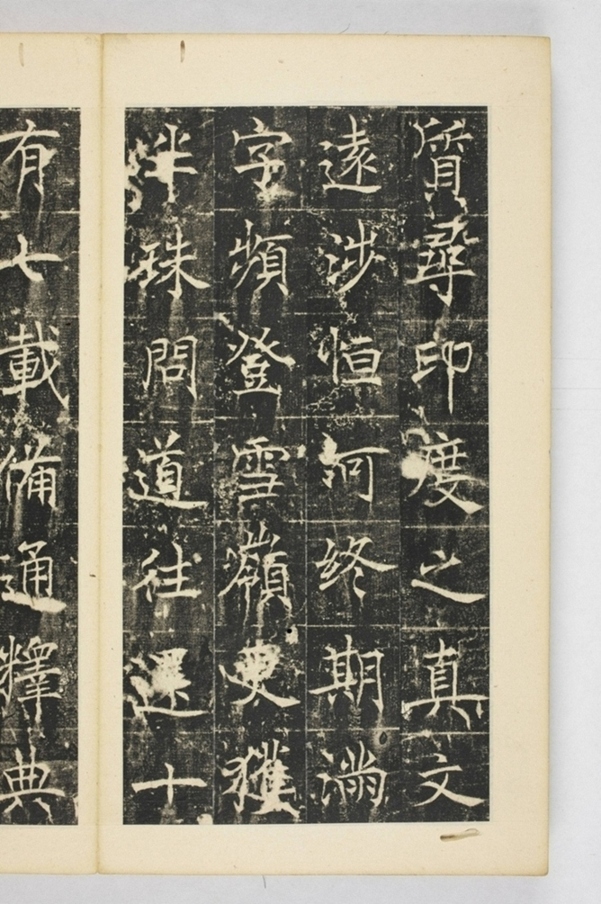 質尋印度之真文
遠涉恒河終期滿
字頻登雪嶺更獲
半珠問道往還十
有七載備通釋典